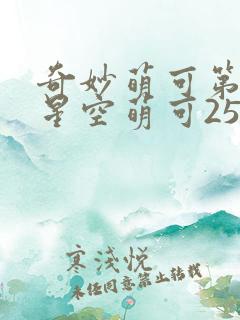 奇妙萌可第
星空萌可25
寒浅悦
未经同意禁止转载